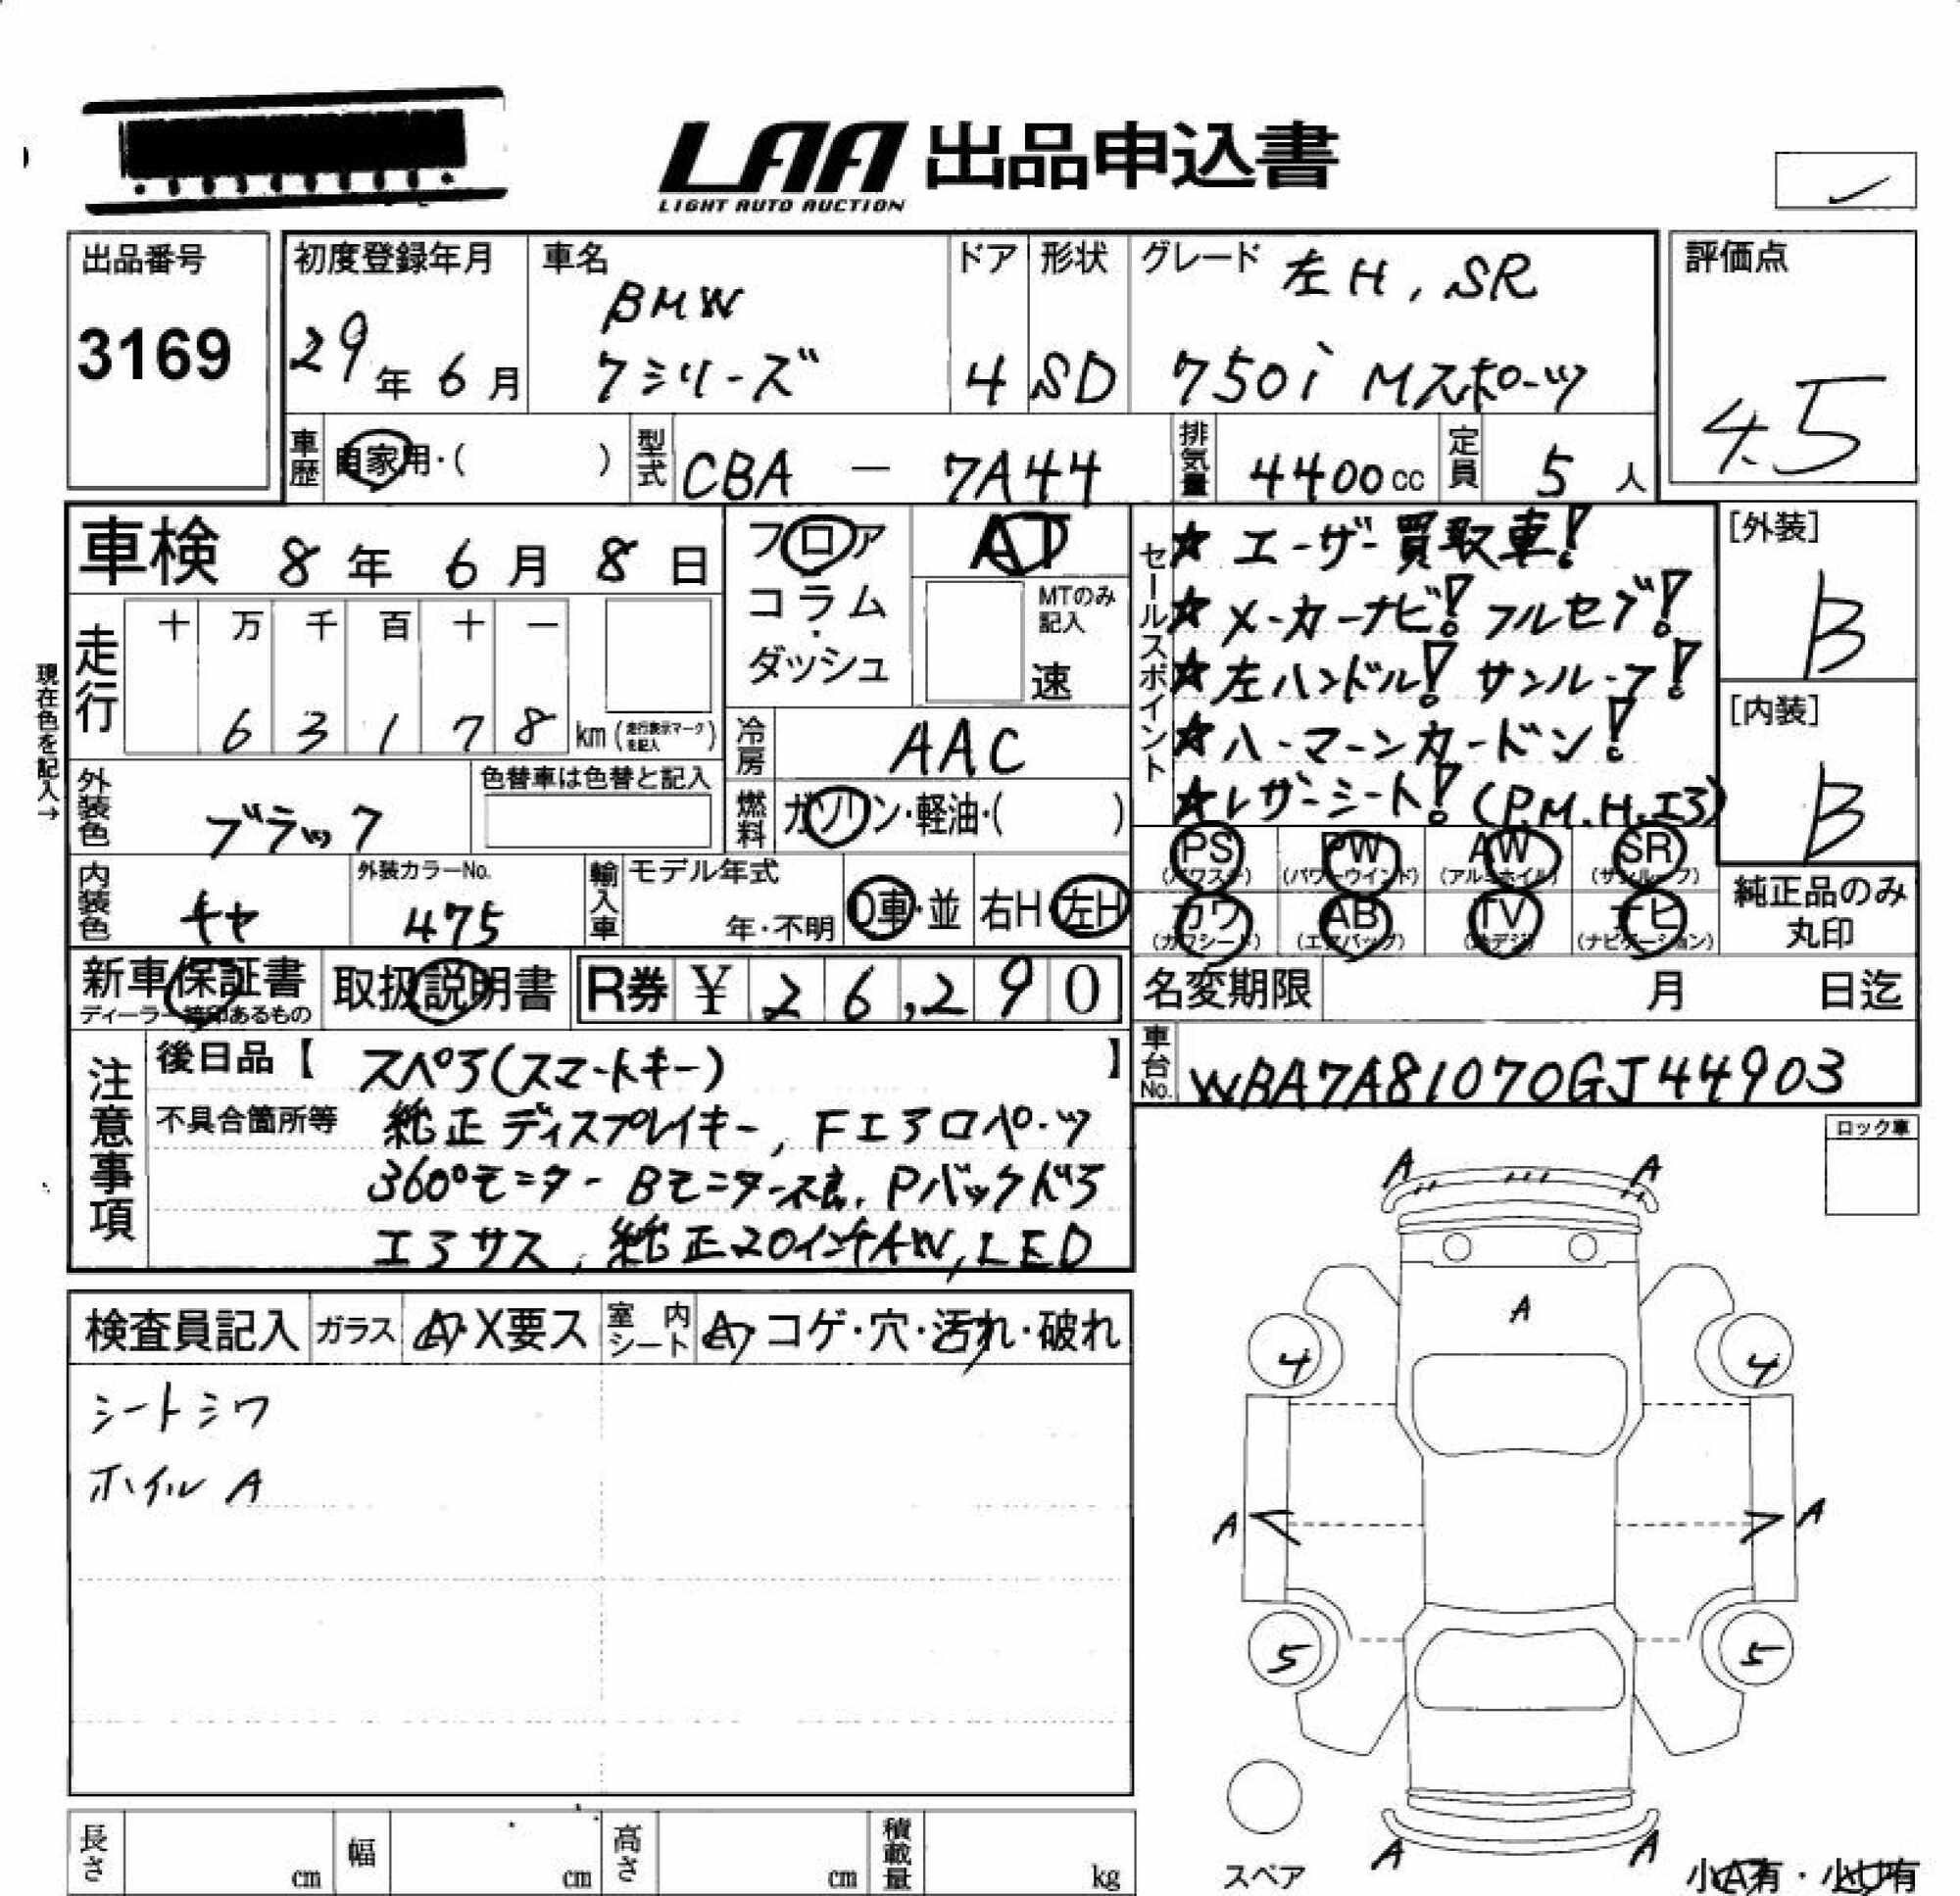 LAA 出品申込書
LIGHT AUTO AUCTION
出品番号
3169
初度登録年月
29年 6月
車名
BMW
7シリーズ
ドア
4
形状
SD
グレード 左H, SR
750i Mスポーツ
評価点
4.5
車歴 自家用・( )
型式 CBA - 7A44
排気量 4400cc
定員 5人
車検 8年 6月 8日
走行 十 万 千 百 十 一
6 3 1 7 8 km (走行表示マークを記入)
現在色を記入→
外装色 ブラック
色替車は色替と記入
内装色 キャ
外装カラーNo.
475
フロア
コラム
・
ダッシュ
AT
MTのみ記入
速
冷房 AAC
燃料 ガソリン・軽油・( )
輸入車 モデル年式
年・不明
D車・並 右H 左H
セールスポイント
★ユーザー買取車!
★メーカーナビ! フルセグ!
★左ハンドル! サンルーフ!
★ハーマンカードン!
★レザーシート! (P.M.H.エア)
[外装]
B
[内装]
B
PS (パワステ)
PW (パワーウインド)
AW (アルミホイル)
SR (サンルーフ)
カワ (カワシート)
AB (エアバッグ)
TV (地デジ)
ナビ (ナビゲーション)
純正品のみ
丸印
新車保証書
ディーラー捺印あるもの
取扱説明書
R券 ¥ 26,290
名変期限 月 日迄
車台No. WBA7A81070GJ44903
注意事項
後日品【 スペア(スマートキー) 】
不具合箇所等 純正ディスプレイキー, Fエアロパーツ
360°モニター Bモニター Pバックドア
エアサス, 純正20インチAW, LED
ロック車
検査員記入
ガラス A・X要ス
室内シート A・コゲ・穴・汚れ・破れ
シートシワ
ホイル A
A A
A
4 4
A A
5 5
A A
スペア
小A有・小U有
長さ cm
幅 cm
高さ cm
積載量 kg